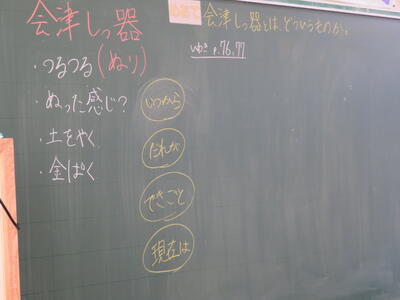 会津しっ器
・つるつる(ぬり)
・ぬった感じ?
・土をやく
・金ぱく
会津しっ器とは、どういうものか。
ゆき p.76,77
いつから
だれが
できごと
現在は